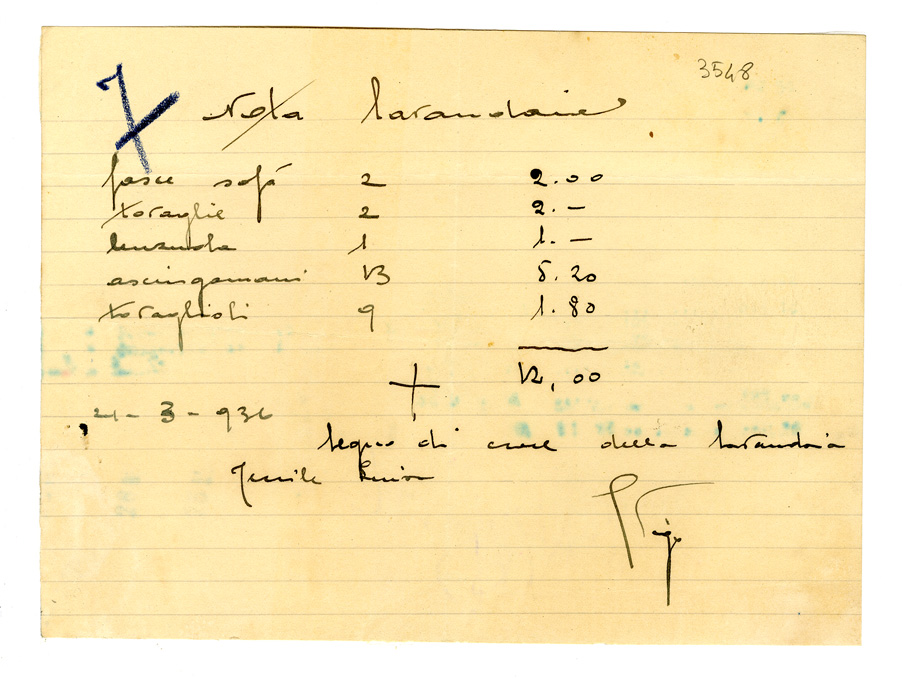 3548
7
Nota lavandaie
fasce sofà 2 2.00
tovaglie 2 2.-
lenzuola 1 1.-
asciugamani 13 5.20
tovaglioli 9 1.80
12,00
+
21-3-936
segno di croce della lavandaia